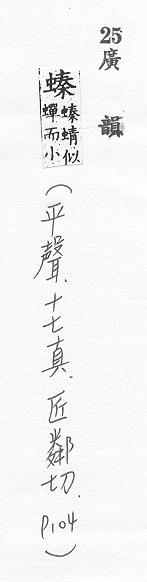 25 廣韻
螓 螓蜻似蟬而小
(平聲.十七真.匠鄰切.P104)